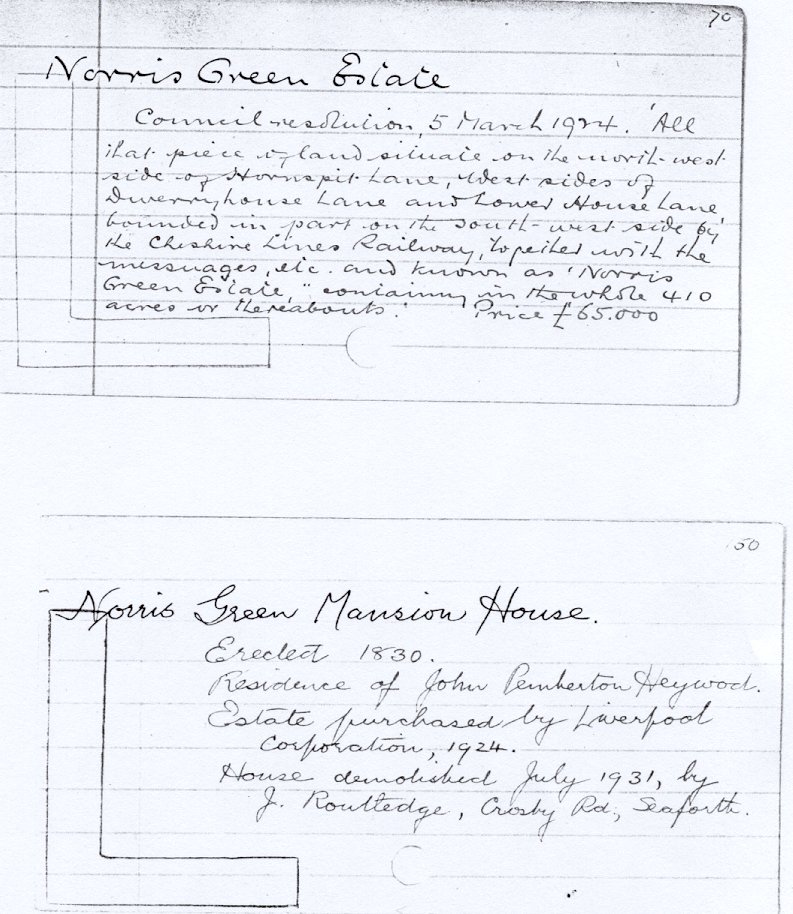 70
Norris Green Estate
Council resolution, 5 March 1924. 'All
that piece of land situate on the north-west
side of Hornspit Lane, West sides of
Dwerryhouse Lane and Lower House Lane,
bounded in part on the South-west side by
the Cheshire Lines Railway, together with the
messuages, etc. and known as 'Norris
Green Estate," containing in the whole 410
acres or thereabouts.' Price £65.000
50
Norris Green Mansion House.
Erected 1830.
Residence of John Pemberton Heywood.
Estate purchased by Liverpool
Corporation, 1924.
House demolished July 1931, by
J. Routledge, Crosby Rd., Seaforth.